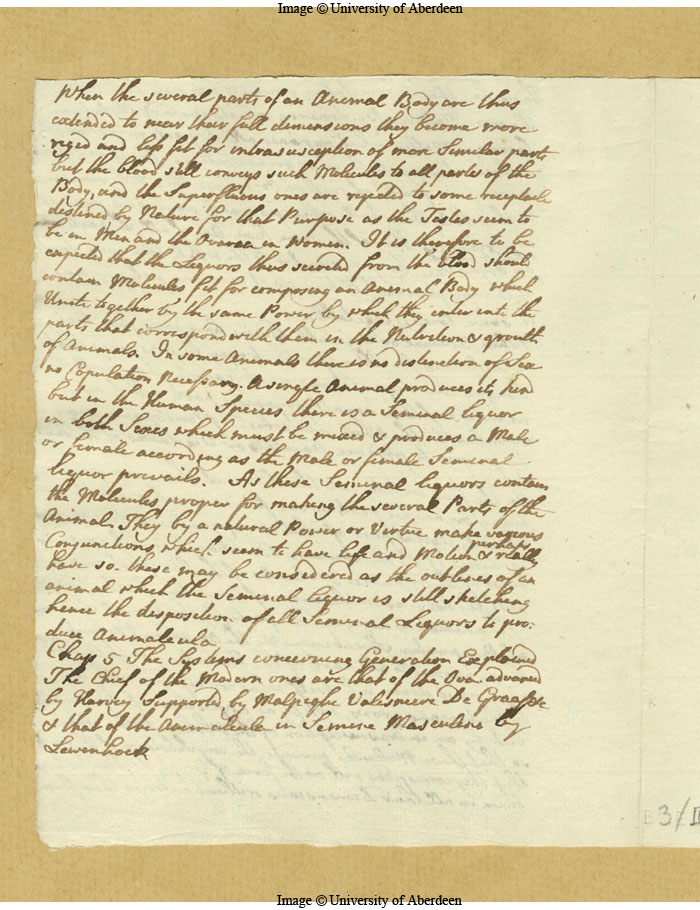 Image © University of Aberdeen
When the several parts of an Animal Body are thus
extended to near their full dimensions they become more
rigid and less fit for intrasusception of more Similar parts
but the blood still conveys such Molecules to all partes of the
Body, and the Superfluous ones are rejected to some receptacle
destined by Nature for that Purpose as the Testes seem to
be in Men and the Ovaraa in Women. It is therefore to be
expected that the Liquors thus secreted from the blood should
contain Molecules fit for composing an Animal Body which
Unite together by the same Power by which they enter into the
parts that correspond with them in the Nutrition & growth
of Animals. In some Animals there is no distinction of Sex
no Copulation Necessary. A single Animal produces its kind
but in the Human Species there is a Seminal liquor
in both Sexes which must be mixed & produces a Male
or female according as the Male or female Seminal
liquor prevails. As these Seminal liquors contain
the Molecules proper for making the several Parts of the
Animal They by a natural Power or Virtue make various
Conjunctions which seem to have life and Motion & perhaps really
have so. these may be considered as the outlines of an
animal which the Seminal liquor is still sketching
hence the disposition of all Seminal Liquors to pro:
duce Animalcula
Chap 5 The Systems concerning Generation Explained
The Chief of the Modern ones are that of the Ova advanced
by Harvey Supported by Malpighe Valisneere De Graaffe
& that of the Animalcula in Semine Masculino by
Lewenhoek
3/II
Image © University of Aberdeen